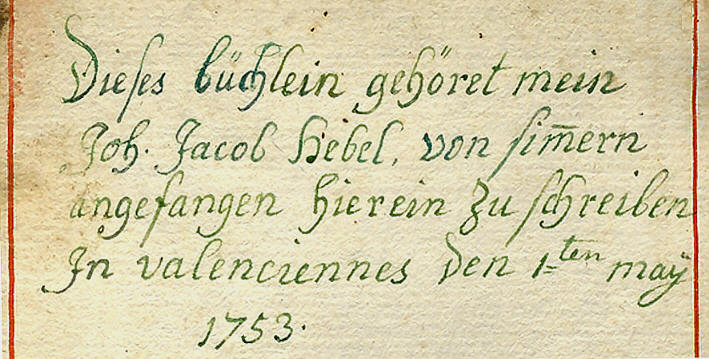 Dieſes büchlein gehöret mein
Joh. Jacob Hebel, von ſim̅ern
angefangen hierein zu ſchreiben
In valenciennes den 1ten maÿ
1753.